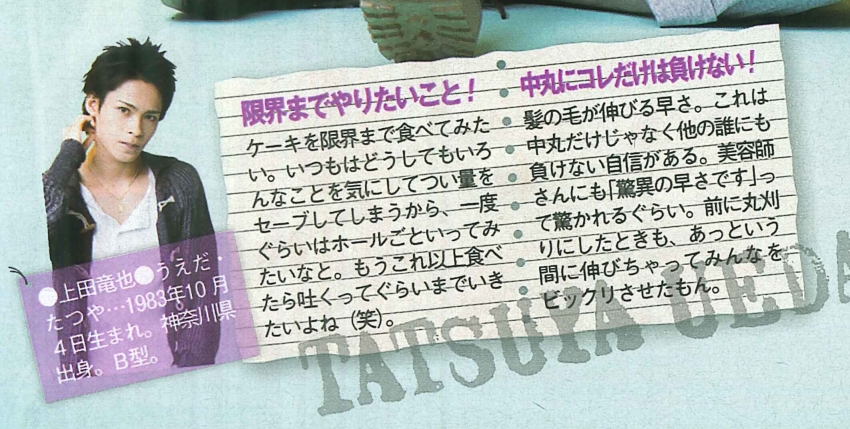 限界までやりたいこと!
ケーキを限界まで食べてみた
い。いつもはどうしてもいろ
んなことを気にしてつい量を
セーブしてしまうから、一度
ぐらいはホールごといってみ
たいなと。もうこれ以上食べ
たら吐くってぐらいまでいき
たいよね(笑)。
中丸にコレだけは負けない!
髪の毛が伸びる早さ。これは
中丸だけじゃなく他の誰にも
負けない自信がある。美容師
さんにも「驚異の早さです」っ
て驚かれるぐらい。前に丸刈
りにしたときも、あっという
間に伸びちゃってみんなを
ビックリさせたもん。
●上田竜也●うえだ・
たつや…1983年10月
4日生まれ。神奈川県
出身。B型。
TATSUYA UEDA